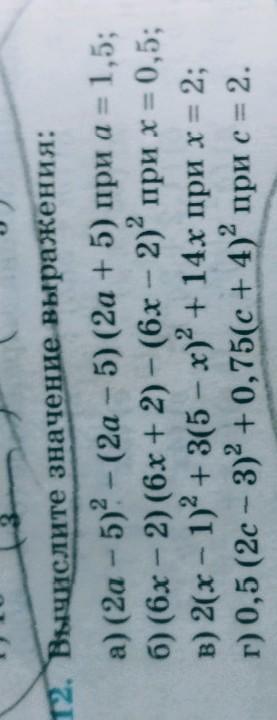 12. Вычислите значение выражения:
а) (2a − 5)² − (2a − 5) (2a + 5) при a = 1,5;
б) (6x − 2) (6x + 2) − (6x − 2)² при x = 0,5;
в) 2(x − 1)² + 3(5 − x)² + 14x при x = 2;
г) 0,5 (2c − 3)² + 0,75(c + 4)² при c = 2.